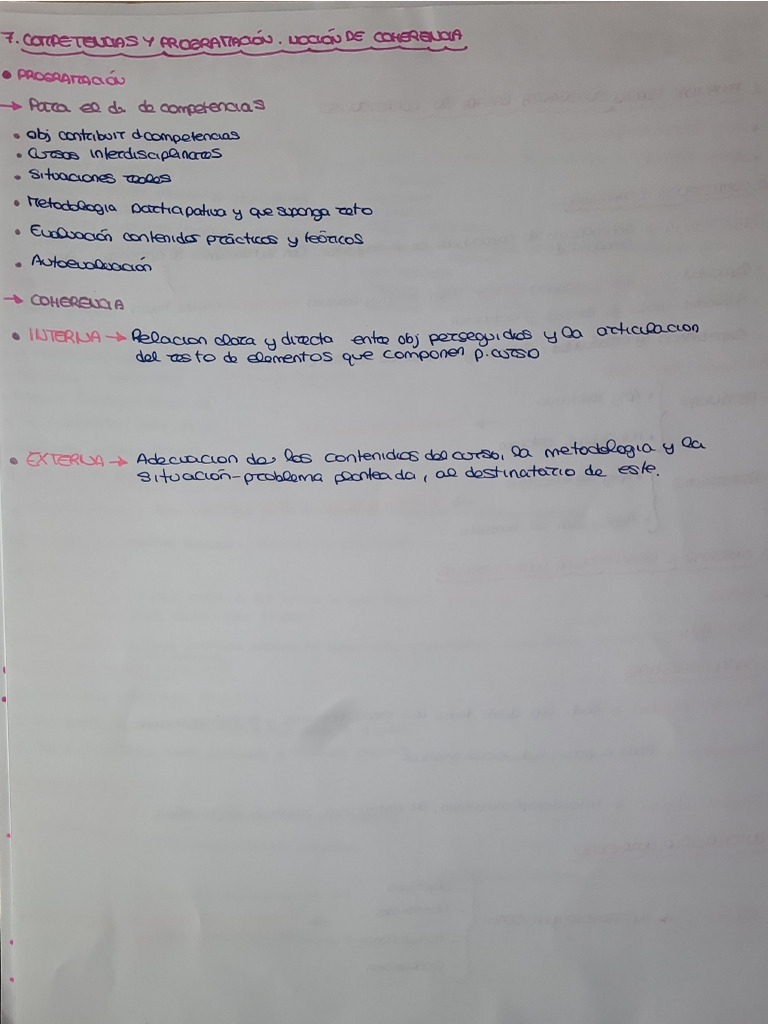 7. COMPETENCIAS Y PROGRAMACIÓN. NOCIÓN DE COHERENCIA
• PROGRAMACIÓN
→ Para el d. de competencias
• Obj contribuir d competencias
• Cursos interdisciplinares
• Situaciones reales
• Metodologia participativa y que suponga reto
• Evaluación contenidos prácticos y teóricos
• Autoevaluación
→ COHERENCIA
• INTERNA → Relacion clara y directa entre obj perseguidos y la articulacion
del resto de elementos que componen p. curso
• EXTERNA → Adecuacion de los contenidos del curso, la metodologia y la
situación-problema planteada, al destinatario de este.